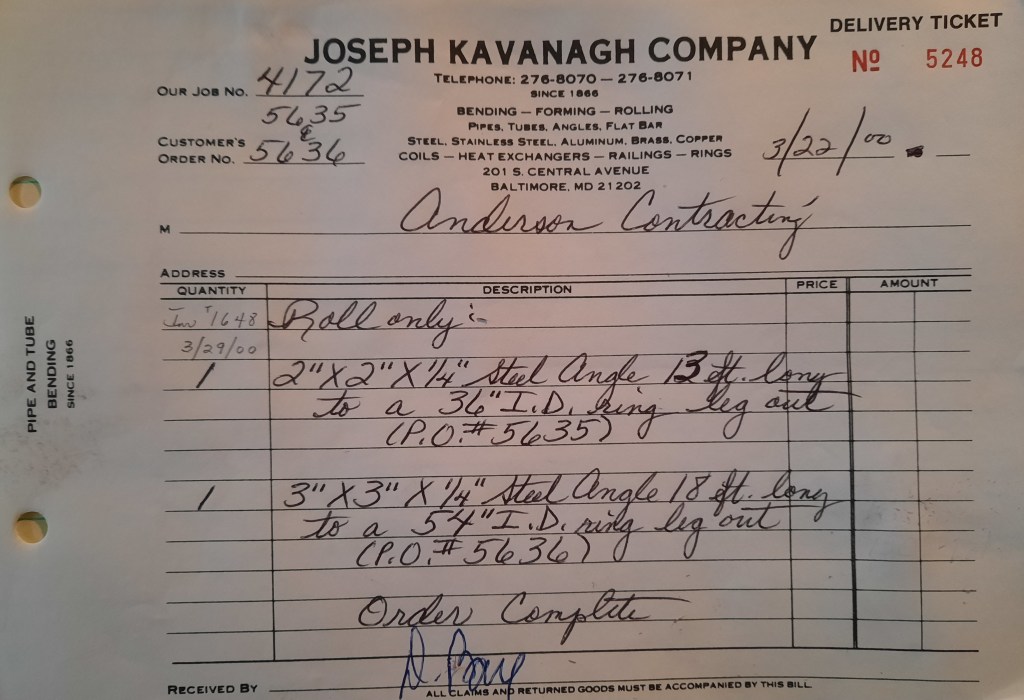 DELIVERY TICKET
JOSEPH KAVANAGH COMPANY
Nº 5248
TELEPHONE: 276-8070 — 276-8071
SINCE 1866
OUR JOB NO. 4172
BENDING — FORMING — ROLLING
PIPES, TUBES, ANGLES, FLAT BAR
STEEL, STAINLESS STEEL, ALUMINUM, BRASS, COPPER
COILS — HEAT EXCHANGERS — RAILINGS — RINGS
201 S. CENTRAL AVENUE
BALTIMORE, MD 21202
5635
&
CUSTOMER'S
ORDER NO. 5636
3/22/00
M Anderson Contracting
ADDRESS
QUANTITY DESCRIPTION PRICE AMOUNT
Inv # 1648 Roll only:-
3/29/00
1 2" X 2" X 1/4" Steel Angle 13 ft. long
to a 36" I.D. ring leg out
(P.O.# 5635)
1 3" X 3" X 1/4" Steel Angle 18 ft. long
to a 54" I.D. ring leg out
(P.O.# 5636)
Order Complete
RECEIVED BY
ALL CLAIMS AND RETURNED GOODS MUST BE ACCOMPANIED BY THIS BILL
PIPE AND TUBE
BENDING
SINCE 1866